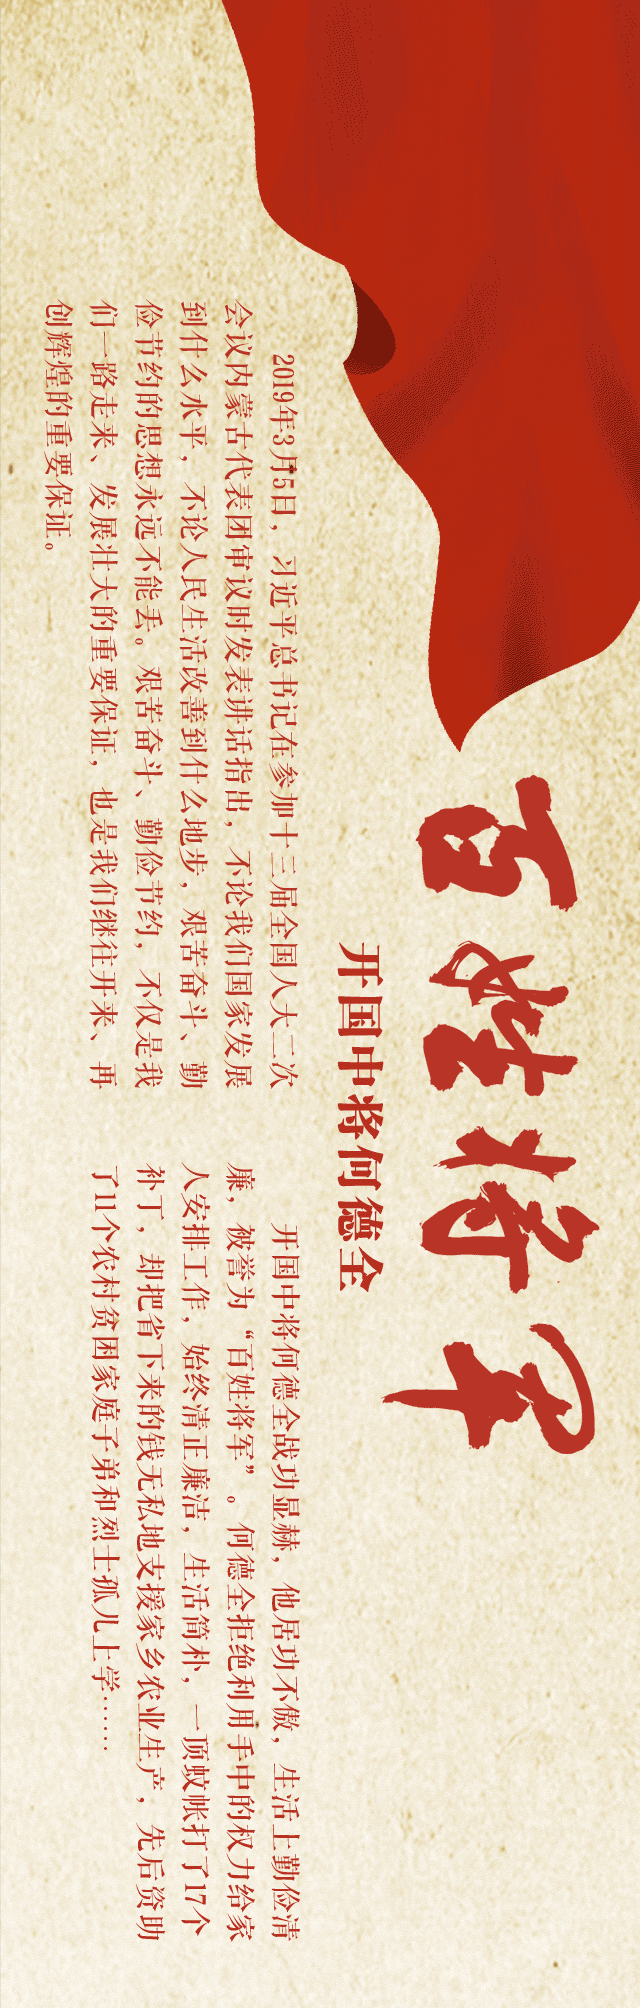 百姓将军
开国中将何德全
2019年3月5日，习近平总书记在参加十三届全国人大二次
会议内蒙古代表团审议时发表讲话指出，不论我们国家发展
到什么水平，不论人民生活改善到什么地步，艰苦奋斗、勤
俭节约的思想永远不能丢。艰苦奋斗、勤俭节约，不仅是我
们一路走来、发展壮大的重要保证，也是我们继往开来、再
创辉煌的重要保证。
开国中将何德全战功显赫，他居功不傲，生活上勤俭清
廉，被誉为“百姓将军”。何德全拒绝利用手中的权力给家
人安排工作，始终清正廉洁，生活简朴，一顶蚊帐打了17个
补丁，却把省下来的钱无私地支援家乡农业生产，先后资助
了11个农村贫困家庭子弟和烈士孤儿上学……